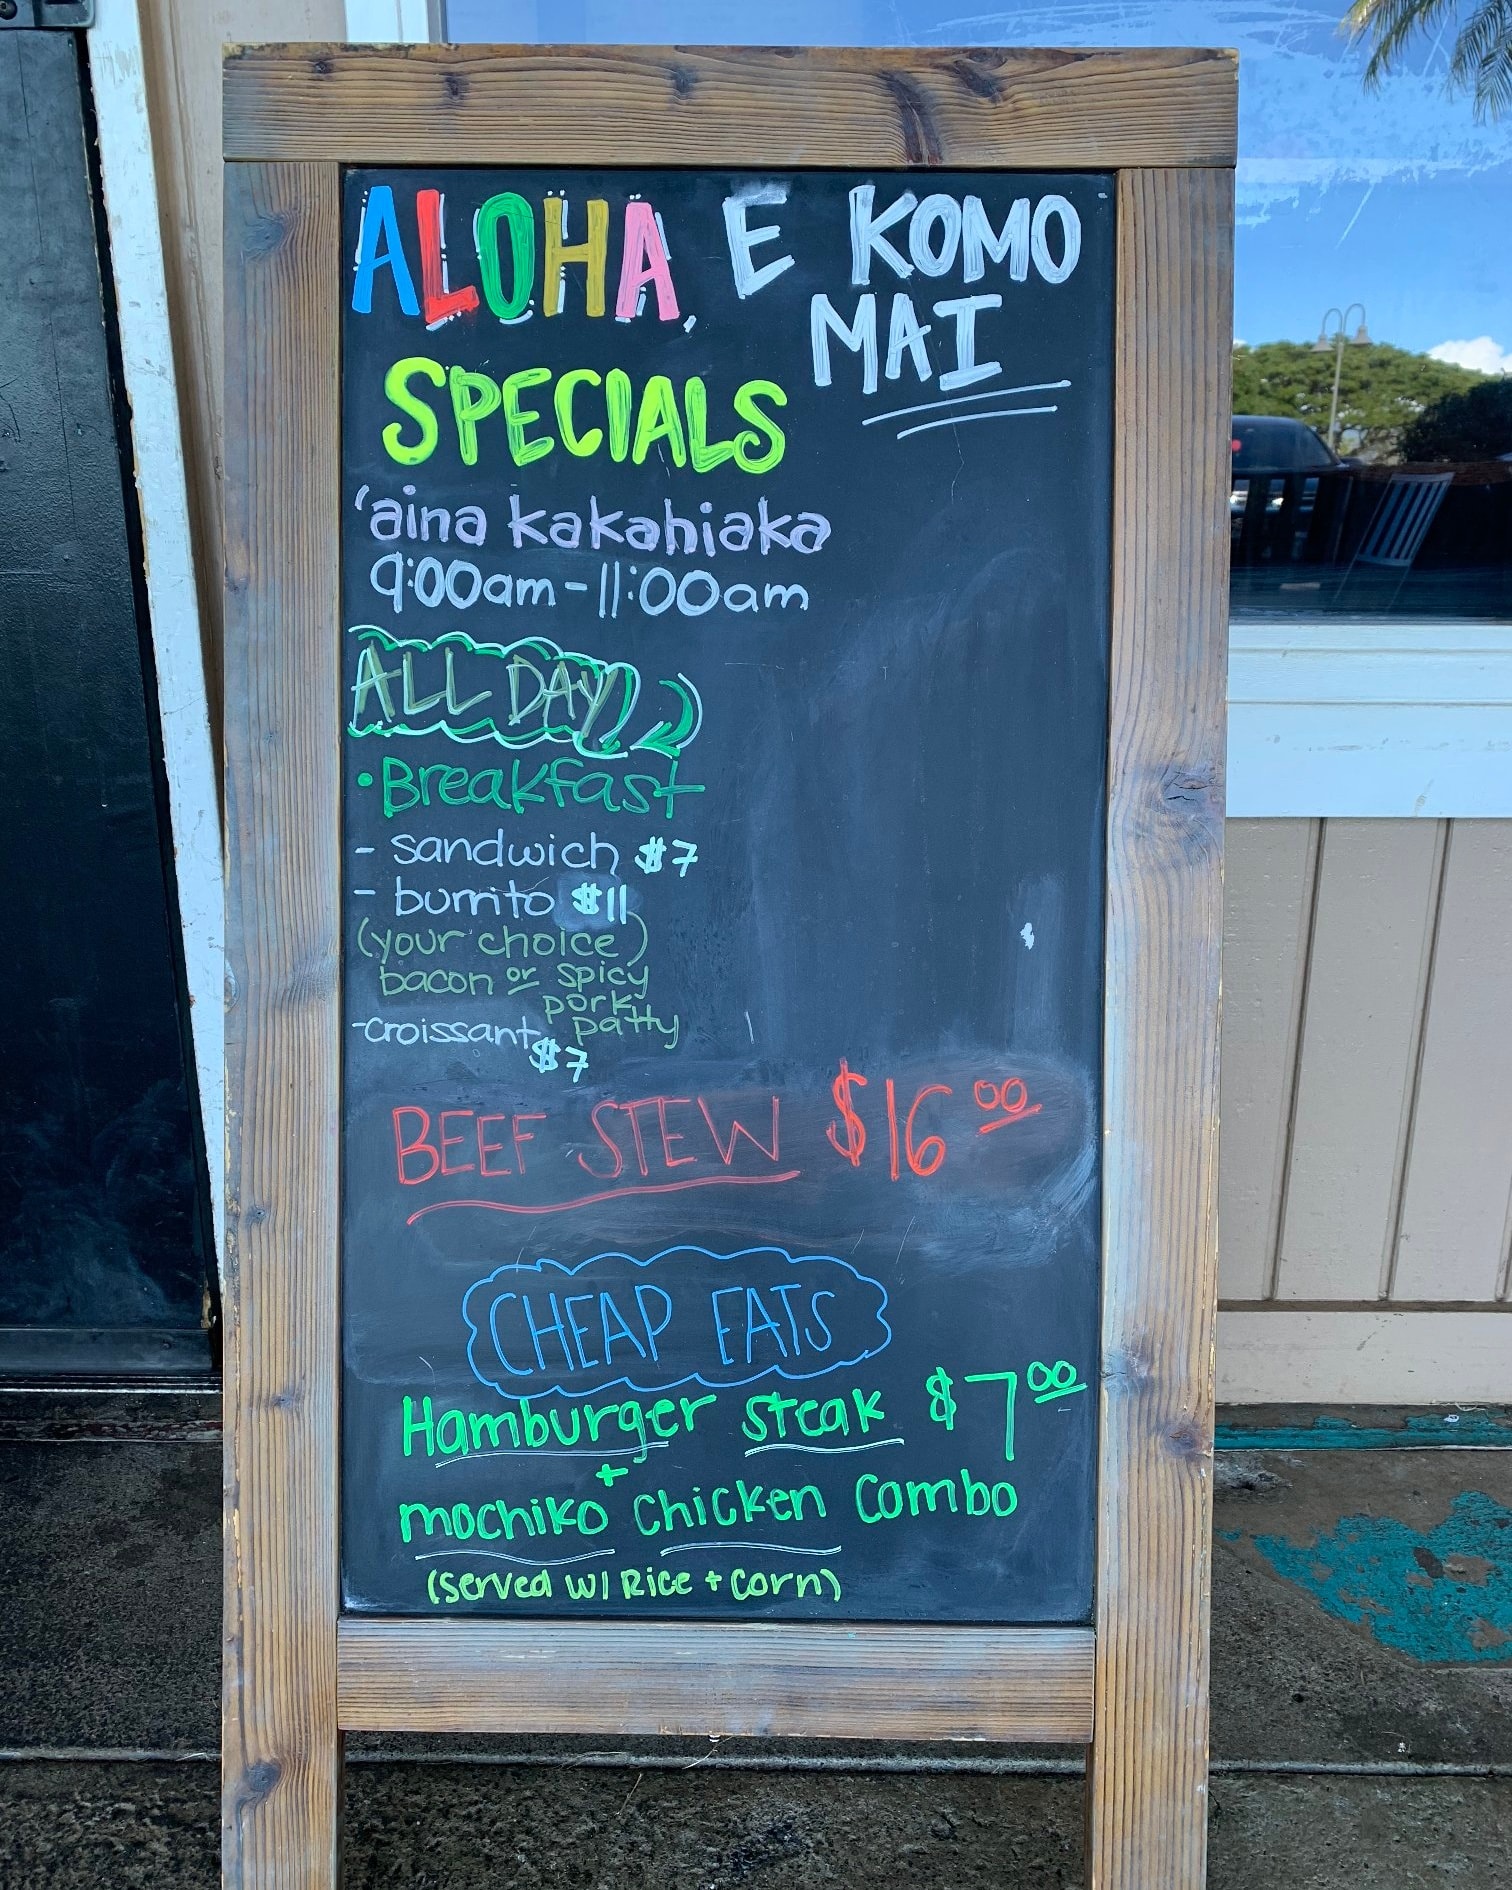 ALOHA, E KOMO
MAI
SPECIALS
ʻaina kakahiaka
9:00am - 11:00am
ALL DAY
• Breakfast
- sandwich $7
- burrito $11
(your choice)
bacon or spicy
pork
patty
- croissant
$7
BEEF STEW $16.00
CHEAP EATS
Hamburger Steak $7.00
+
mochiko chicken Combo
(served w/ Rice + Corn)